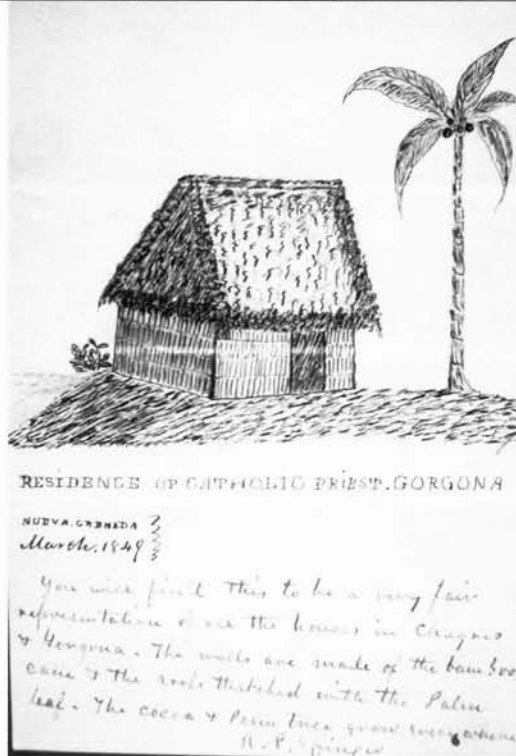 RESIDENCE OF CATHOLIC PRIEST. GORGONA
NUEVA. GRENADA
March. 1849
You will find this to be a very fair
representation of the houses in Chagres
& Gorgona. The walls are made of the bamboo
cane & the roofs thatched with the Palm
leaf. The cocoa & Palm trees grow everywhere